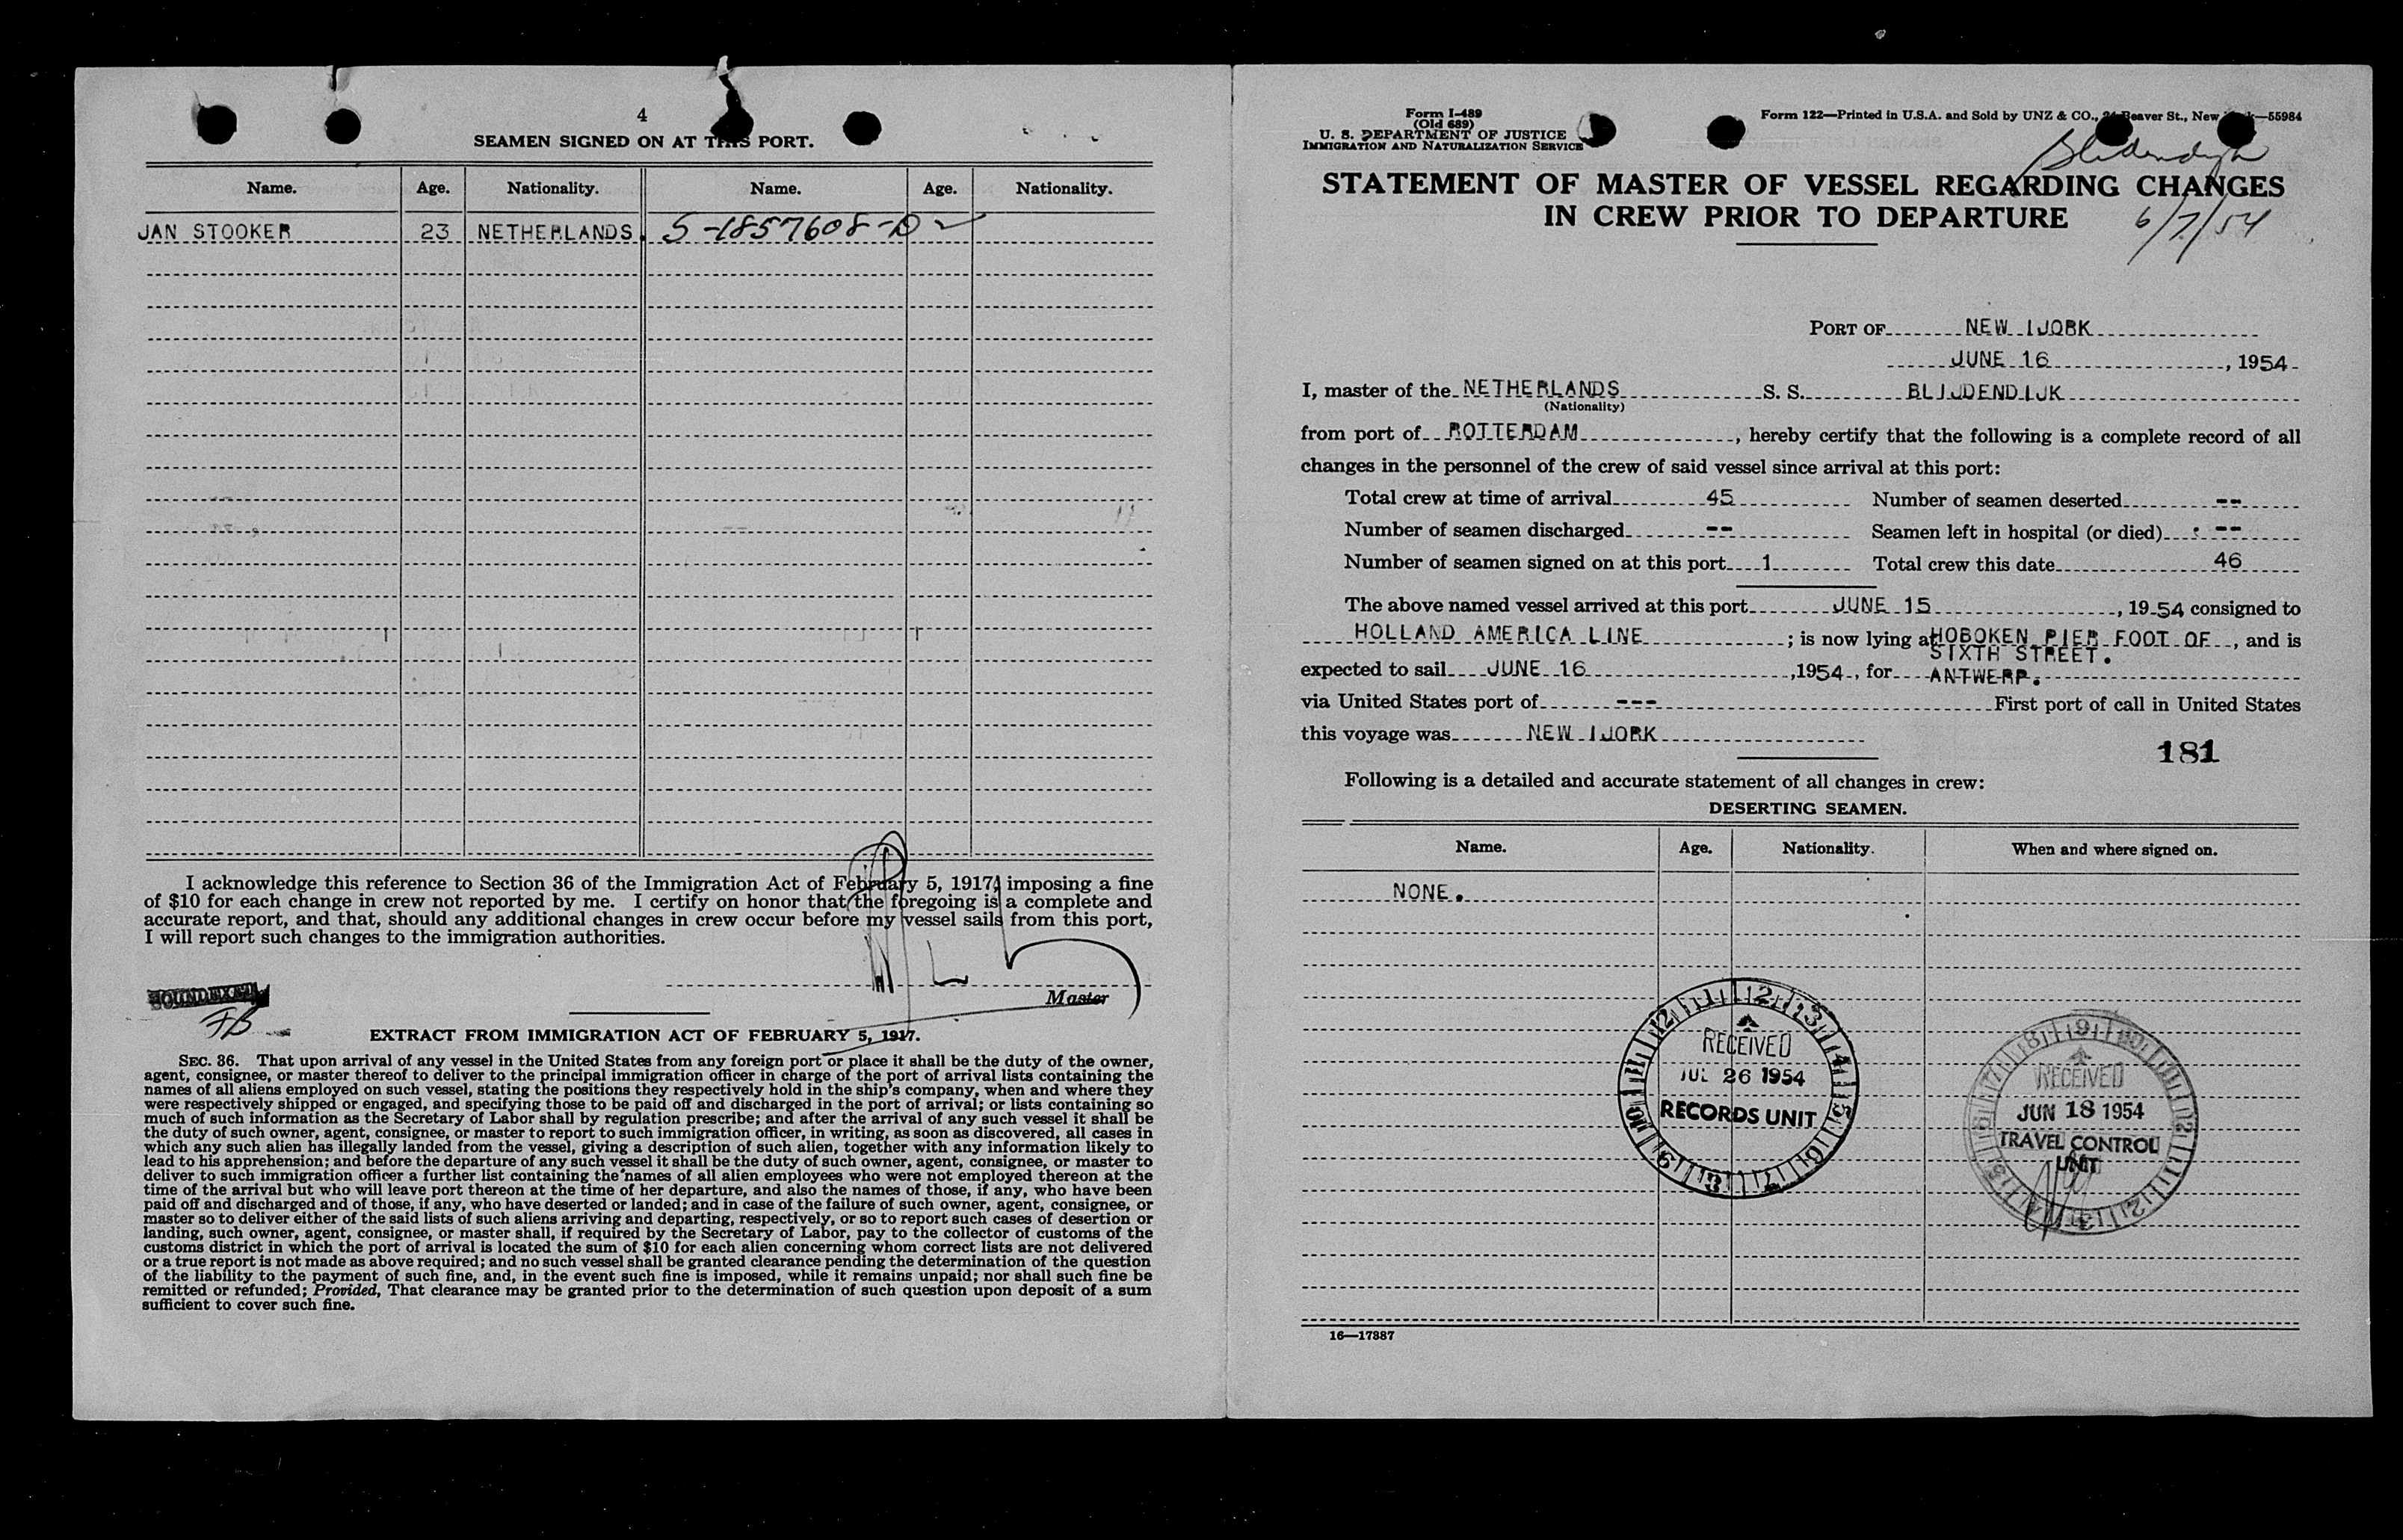 4
SEAMEN SIGNED ON AT THIS PORT.
Name. Age. Nationality. Name. Age. Nationality.
JAN STOOKER 23 NETHERLANDS. S-1857608-D
I acknowledge this reference to Section 36 of the Immigration Act of February 5, 1917, imposing a fine
of $10 for each change in crew not reported by me. I certify on honor that the foregoing is a complete and
accurate report, and that, should any additional changes in crew occur before my vessel sails from this port,
I will report such changes to the immigration authorities.
Master
SOUNDEXED
FB
EXTRACT FROM IMMIGRATION ACT OF FEBRUARY 5, 1917.
SEC. 36. That upon arrival of any vessel in the United States from any foreign port or place it shall be the duty of the owner,
agent, consignee, or master thereof to deliver to the principal immigration officer in charge of the port of arrival lists containing the
names of all aliens employed on such vessel, stating the positions they respectively hold in the ship's company, when and where they
were respectively shipped or engaged, and specifying those to be paid off and discharged in the port of arrival; or lists containing so
much of such information as the Secretary of Labor shall by regulation prescribe; and after the arrival of any such vessel it shall be
the duty of such owner, agent, consignee, or master to report to such immigration officer, in writing, as soon as discovered, all cases in
which any such alien has illegally landed from the vessel, giving a description of such alien, together with any information likely to
lead to his apprehension; and before the departure of any such vessel it shall be the duty of such owner, agent, consignee, or master to
deliver to such immigration officer a further list containing the names of all alien employees who were not employed thereon at the
time of the arrival but who will leave port thereon at the time of her departure, and also the names of those, if any, who have been
paid off and discharged and of those, if any, who have deserted or landed; and in case of the failure of such owner, agent, consignee, or
master so to deliver either of the said lists of such aliens arriving and departing, respectively, or so to report such cases of desertion or
landing, such owner, agent, consignee, or master shall, if required by the Secretary of Labor, pay to the collector of customs of the
customs district in which the port of arrival is located the sum of $10 for each alien concerning whom correct lists are not delivered
or a true report is not made as above required; and no such vessel shall be granted clearance pending the determination of the question
of the liability to the payment of such fine, and, in the event such fine is imposed, while it remains unpaid; nor shall such fine be
remitted or refunded; Provided, That clearance may be granted prior to the determination of such question upon deposit of a sum
sufficient to cover such fine.
Form I-489
(Old 689)
U. S. DEPARTMENT OF JUSTICE
IMMIGRATION AND NATURALIZATION SERVICE
Form 122—Printed in U.S.A. and Sold by UNZ & CO., Beaver St., New —55984
STATEMENT OF MASTER OF VESSEL REGARDING CHANGES
IN CREW PRIOR TO DEPARTURE
6/7/54
PORT OF NEW IJORK
JUNE 16, 1954
I, master of the NETHERLANDS S. S. BLIJDENDIJK
(Nationality)
from port of ROTTERDAM, hereby certify that the following is a complete record of all
changes in the personnel of the crew of said vessel since arrival at this port:
Total crew at time of arrival 45 Number of seamen deserted --
Number of seamen discharged -- Seamen left in hospital (or died) --
Number of seamen signed on at this port 1 Total crew this date 46
The above named vessel arrived at this port JUNE 15, 1954 consigned to
HOLLAND AMERICA LINE; is now lying at HOBOKEN PIER FOOT OF, and is
SIXTH STREET.
expected to sail JUNE 16, 1954, for ANTWERP.
via United States port of --- First port of call in United States
this voyage was NEW IJORK
181
Following is a detailed and accurate statement of all changes in crew:
DESERTING SEAMEN.
Name. Age. Nationality. When and where signed on.
NONE.
RECEIVED
JUL 26 1954
RECORDS UNIT
RECEIVED
JUN 18 1954
TRAVEL CONTROL
UNIT
16—17887